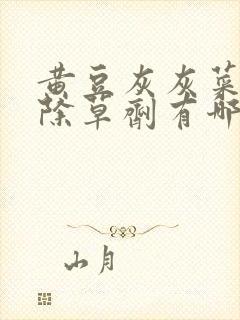 黄豆灰灰菜
除草剂有哪
山月